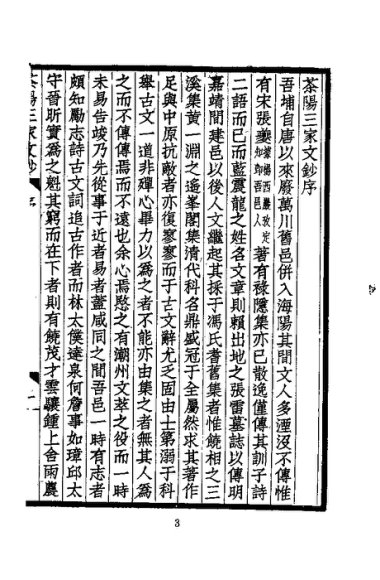 茶陽三家文鈔序
吾埔自唐以來廢萬川舊邑併入海陽其間文人多湮沒不傳惟
有宋張夔 著有祿隱集亦已散逸僅傳其訓子詩
二語而已而藍震龍之姓名文章則賴出地之張雷墓誌以傳明
嘉靖間建邑以後人文繼起其採于馮氏耆舊集者惟饒相之三
溪集黃一淵之遙峯閣集清代科名鼎盛冠于全屬然求其著作
足與中原抗敵者亦復寥寥而于古文辭尤乏固由士第溺于科
舉古文一道非殫心畢力以爲之者不能亦由集之者無其人爲
之而不傳傳焉而不遠也余心焉愍之有潮州文萃之役而一時
未易告竣乃先從事于近者易者蓋咸同之間吾邑一時有志者
頗知勵志詩古文詞追古作者而林太僕達泉何詹事如璋邱太
守晉昕實爲之魁其窮而在下者則有饒茂才雲驤鍾上舍雨農
茶陽三家文鈔
序
一
3